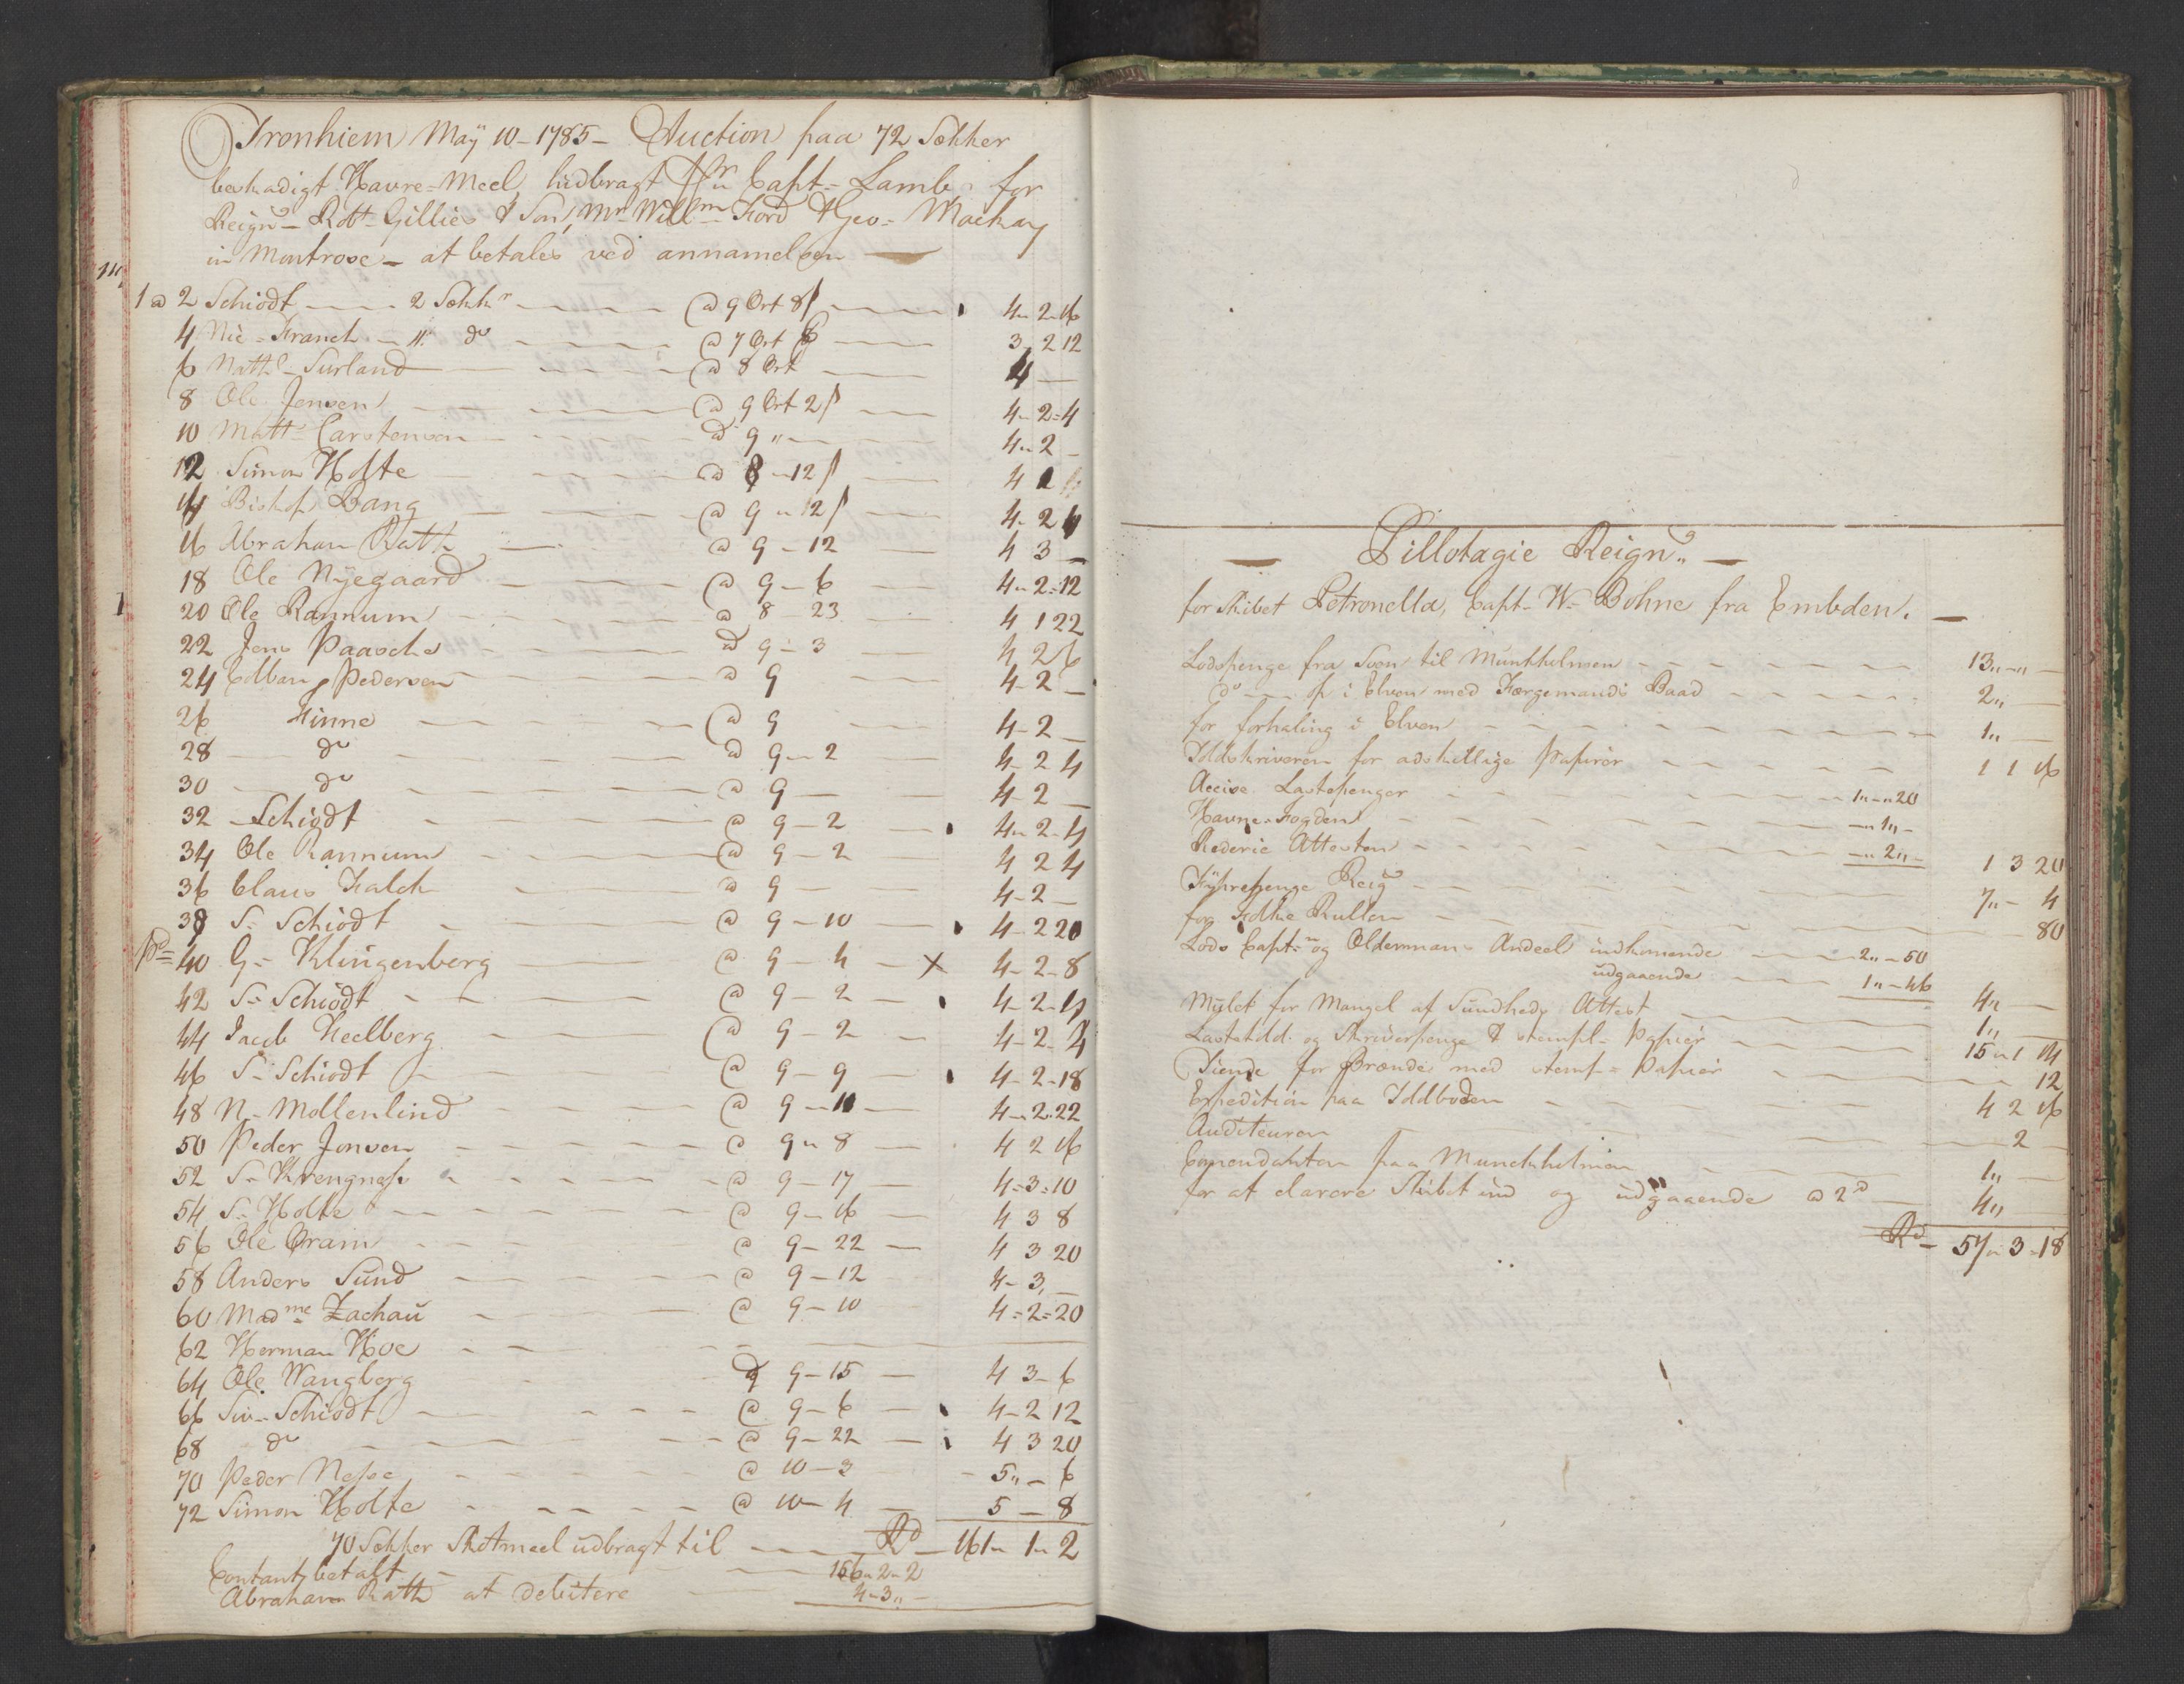 Tronhiem Maÿ 10-1785- Auction paa 72 Sækker
beskadigt Havre=Meel, hidbragt Capt= Lamb for
Reign Robt= Gillies & Son, Mr Willm Ford & Geo= Mackay
in Montrose - at betales ved annamelsen
1 a 2 Schiodt 2 Sækkr @ 9 Ort 8 ß 4 - 2 - 16
4 Nic= Franck do @ 7 Ort 3 2 12
6 Natthl Surland @ 8 Ort 4
8 Ole Jensen @ 9 Ort 2 ß 4 - 2 = 4
10 Matt= Carstensen @ 9 " 4 " 2 -
12 Simon Holte @ 8 - 12 ß 4 1
14 Bishop Bang @ 9 " 12 ß 4 - 2
16 Abraham Rath @ 9 - 12 4 3 -
18 Ole Nÿegaard @ 9 - 6 4 " 2 = 12
20 Ole Rannum @ 8 23 4 1 22
22 Jens Paasche @ 9 - 3 4 2 6
24 Pedersen @ 9 4 - 2 -
26 Finne @ 9 4 - 2 -
28 do @ 9 - 2 4 - 2 4
30 do @ 9 - 4 - 2 -
32 - Schiodt @ 9 - 2 4 " 2 - 4
34 Ole Rannum @ 9 - 2 4 2 4
36 Claus Falck @ 9 - 4 - 2 -
38 S= Schiodt @ 9 - 10 4 - 2 20
40 G= Klingenberg @ 9 - 4 x 4 - 2 - 8
42 S= Schiodt @ 9 - 2 4 - 2 - 4
44 Jacob Heelberg @ 9 - 2 4 - 2 - 4
46 S= Schiodt @ 9 - 9 4 - 2 - 18
48 N= Mollenlind @ 9 - 11 4 - 2 - 22
50 Peder Jensen @ 9 " 8 4 2 16
52 S= Krengnes @ 9 - 17 4 = 3 = 10
54 S= Holte @ 9 - 16 4 3 8
56 Ole Gram @ 9 - 22 4 3 20
58 Anders Sund @ 9 - 12 4 - 3 -
60 Madme Zachau @ 9 - 10 4 = 2 = 20
62 Herman Hoe
64 Ole Wangberg @ 9 - 15 4 3 - 6
66 Siv= Schiodt @ 9 - 6 4 - 2 12
68 do @ 9 - 22 4 3 20
70 Peder Nesse @ 10 - 3 5 " - 6
72 Simon Holte @ 10 - 4 5 - 8
70 Sækker Skotmeel udbragt til Rd 161 " 1 " 2
Contant betalt 156 - 2 - 2
Abraham Rath at debitere 4 - 3 " -
Pillotagie Reign"
for Skibet Petronella, Capt= W= Bohne fra Embden.
Lodspenge fra Soon til Munkholmen 13 " - "
do op i Elven med Færgemands Baad 2 "
for forhaling i Elven 1 "
Toldskriveren for adskellige Papirer 1 1 16
Accise Lastepenger 1 " - " 20
Havne=Fogden - " 1 " -
Rederie Attesten - " 2 " - 1 3 20
Fÿhrepenge Reig 7 " - 4
for Folke Rullen 80
Lods Capt= og Oldermans Andeel indkomende 2 " - 50
udgaaende 1 " - 46 4 "
Mulct for Mangel af Sundheds Attest 1 "
Lastetold og Skriverpenge & stempl= Papier 15 " 1 14
Tiende for Brænde med stemp= Papier 12
Expedition paa Toldboden 4 2 16
Auditeuren 2
Comendanten paa Munckholmen 1 "
for at clarere Skibet ind og udgaaende a 2 d 4 "
Rd - 57 " 3 - 18